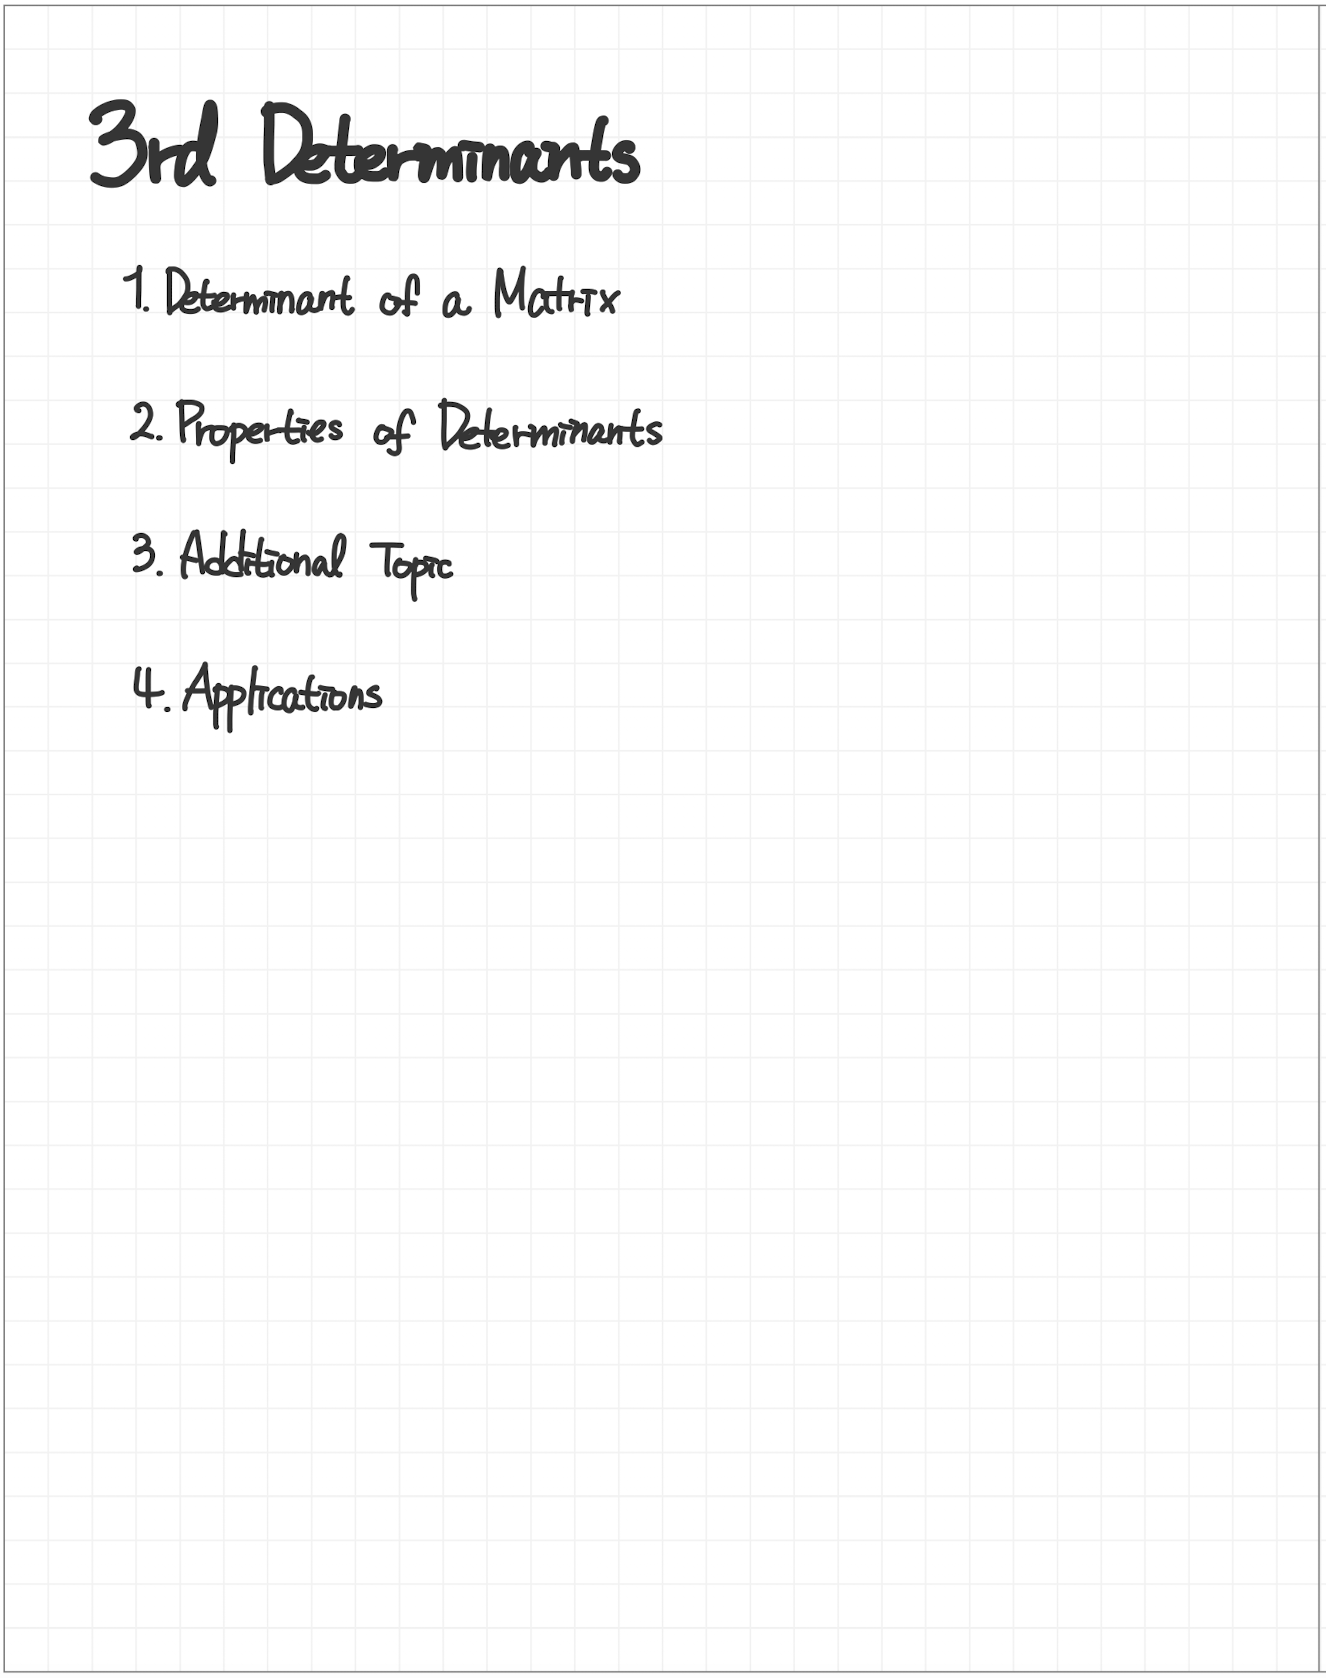 3rd Determinants
1. Determinant of a Matrix
2. Properties of Determinants
3. Additional Topic
4. Applications